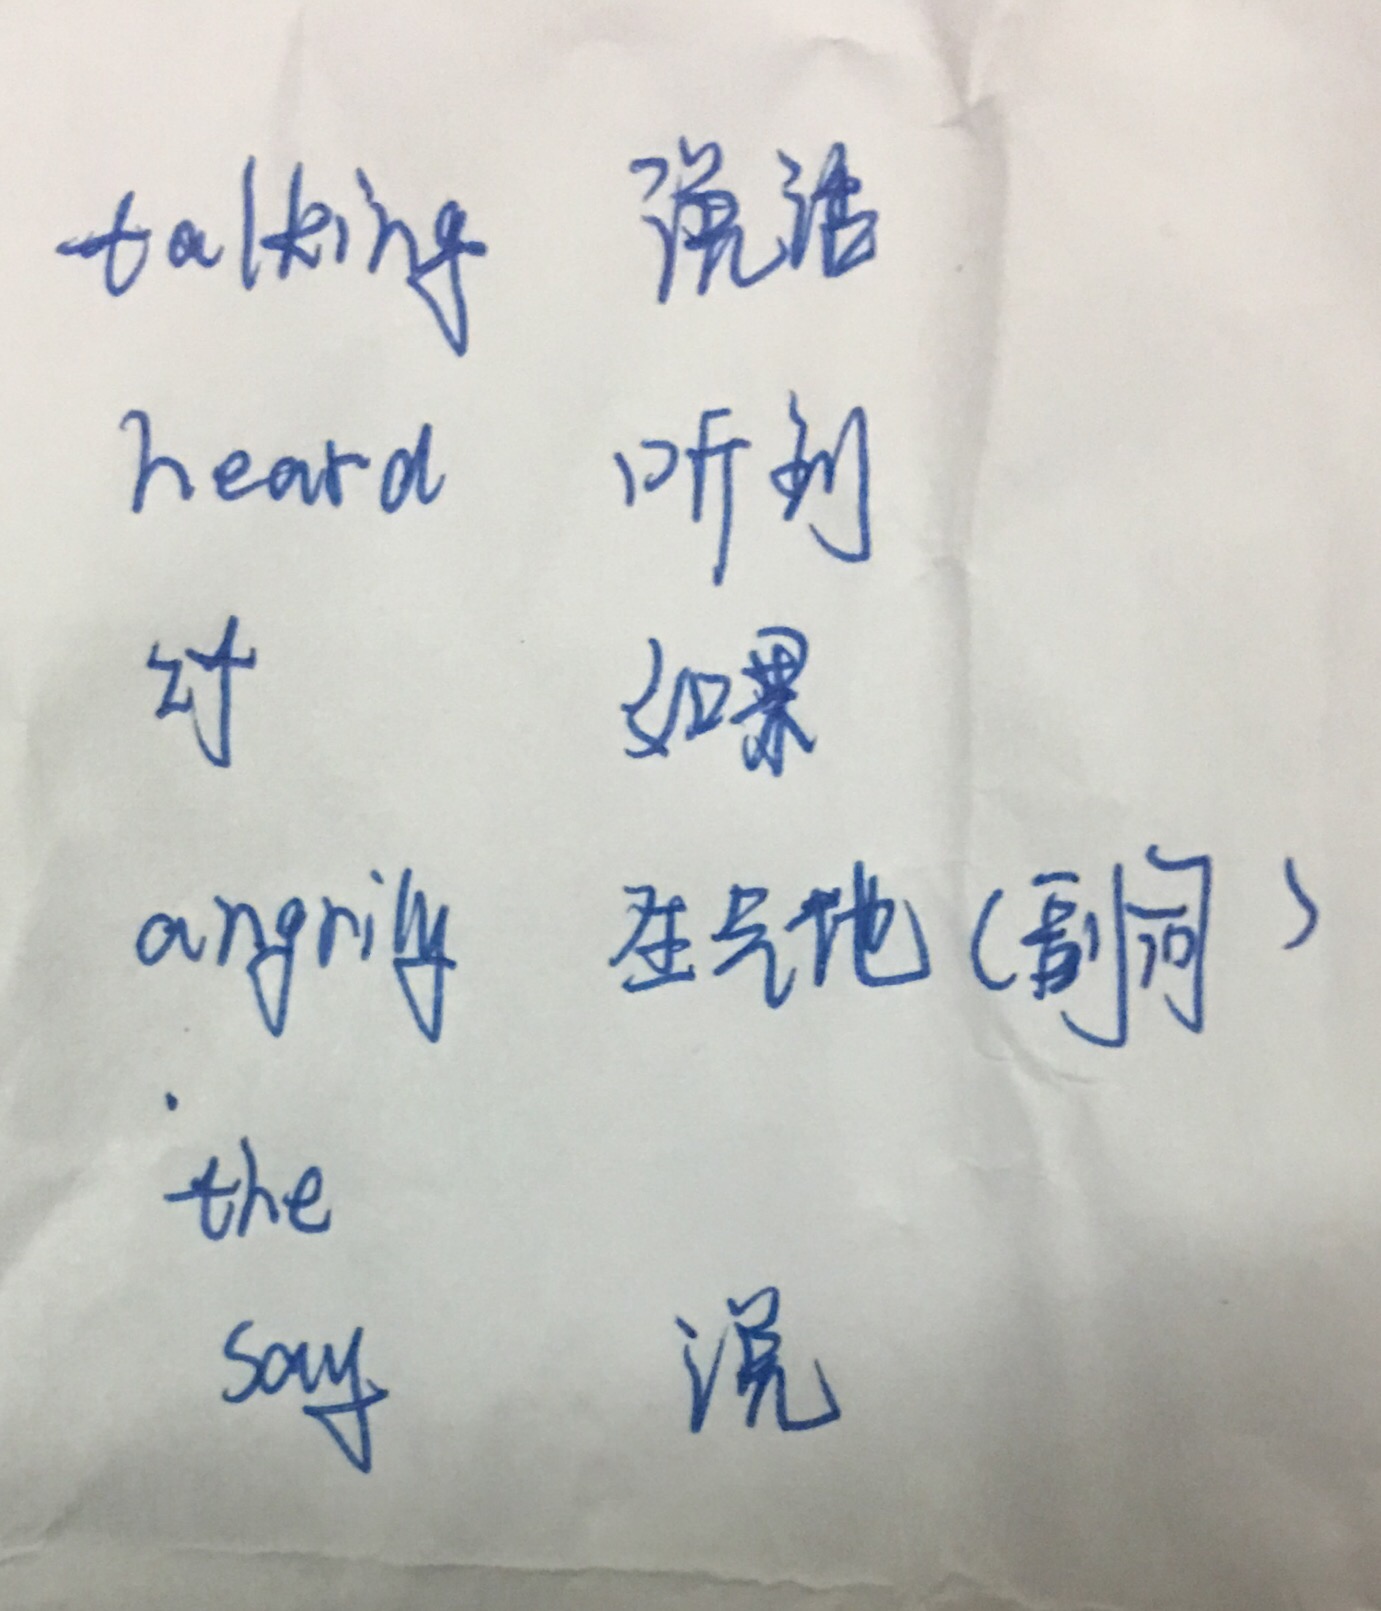 talking 说话
heard 听到
if 如果
angrily 生气地(副词)
the
say 说